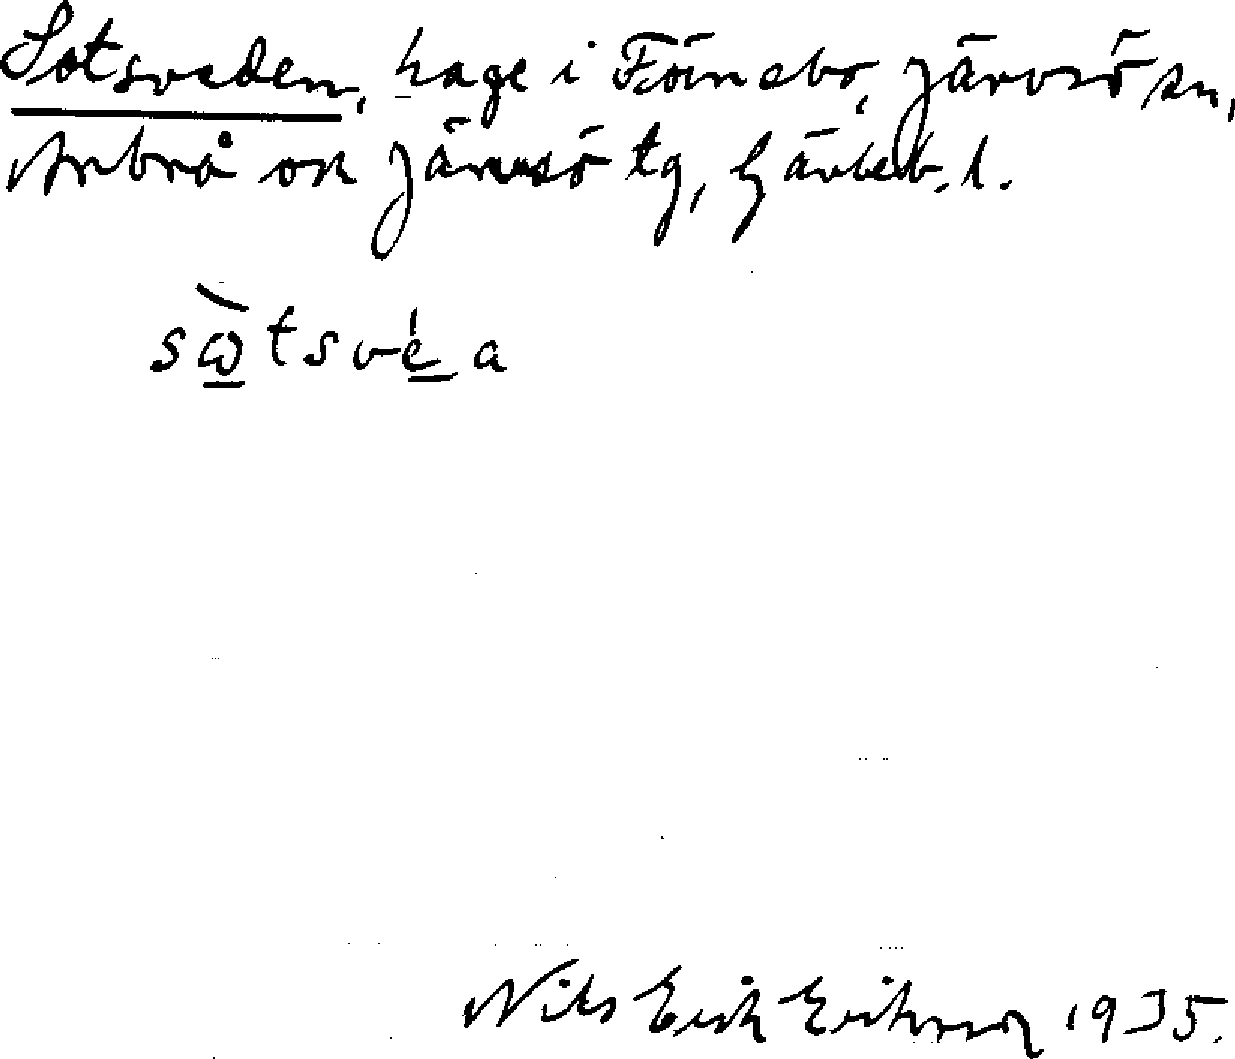 Sotsveden, hage i Föinebo, Järvsö sn,
Arbrå ok Järvsö tg, Gävleb. l.
sὼtsvéa
Nils Erik Eriksson 1935.